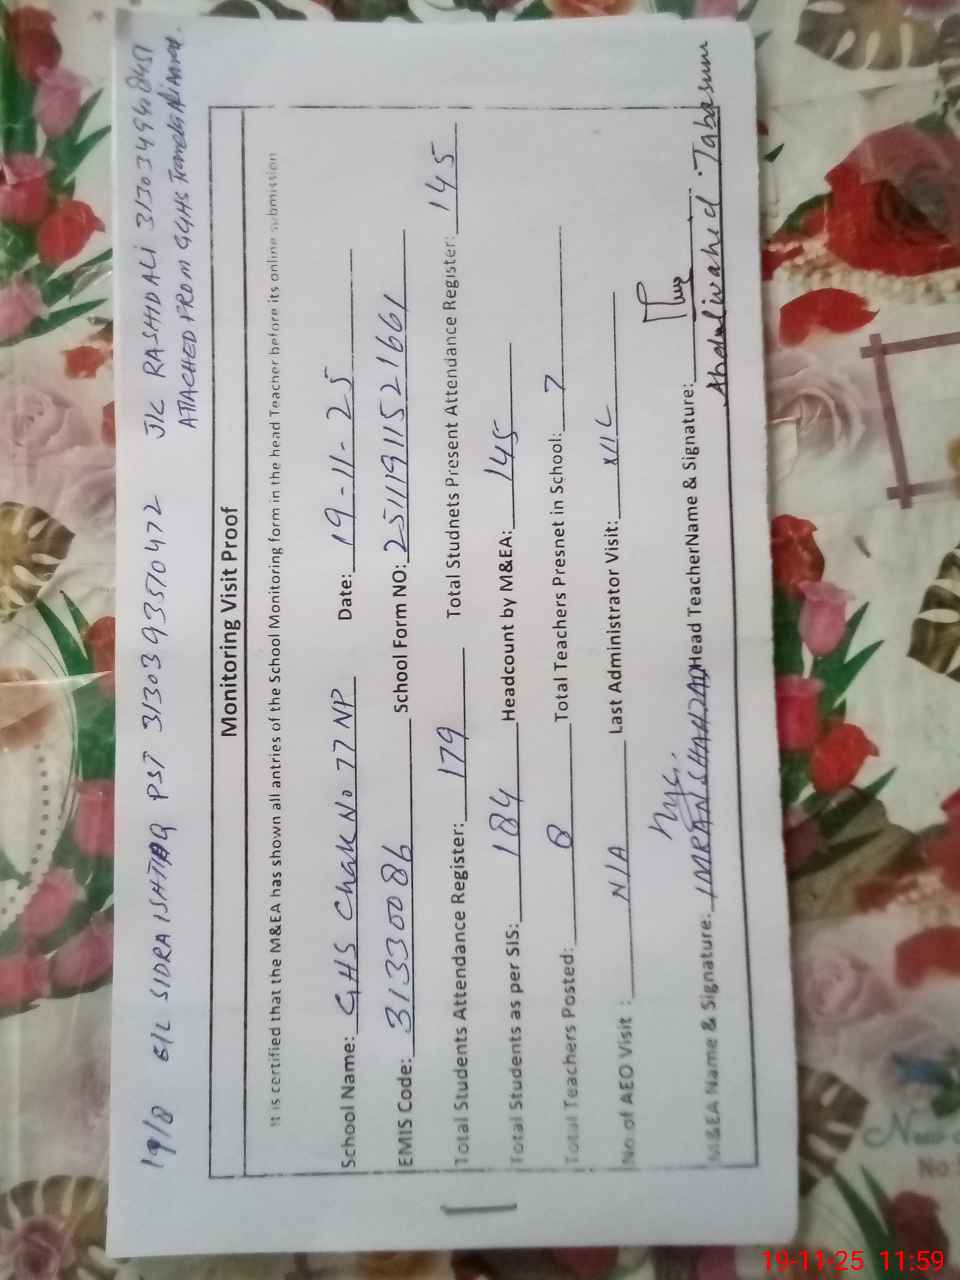 19/8 E/L SIDRA ISHTIAQ PST 31303 9357047 2 J/L RASHID ALI 3130349468451
ATTACHED FROM GGHS
Monitoring Visit Proof
It is certified that the M&EA has shown all antries of the School Monitoring form in the head Teacher before its online submission
School Name: GHS Chak No 77 NP Date: 19-11-25
EMIS Code: 31330086 School Form NO: 2511191152 1661
Total Students Attendance Register: 179 Total Studnets Present Attendance Register: 145
Total Students as per SIS: 184 Headcount by M&EA: 145
Total Teachers Posted: 8 Total Teachers Presnet in School: 7
No of AEO Visit : N/A Last Administrator Visit:
M&EA Name & Signature: IMRAN SHAHZAD Head TeacherName & Signature:
Abdulwahed Tabasum
No
19-11-25 11:59